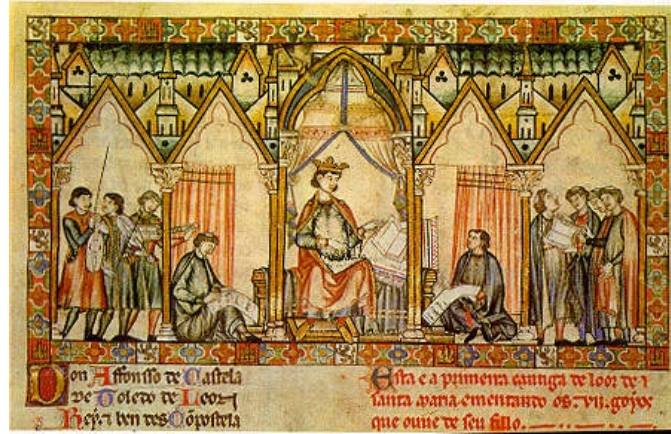 Don Affonsso de Castela
de Toledo de Leon
Rey ⁊ ben des Conpostela
Esta e a primeira cantiga de loor de
santa maria ementando os .vii. goyos
que ouue de seu fillo.